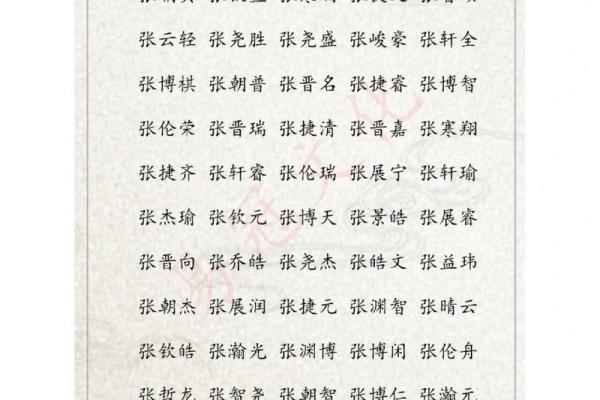 张云轻 张尧胜 张尧盛 张峻豪 张轩全
张博棋 张朝普 张晋名 张捷睿 张博智
张伦荣 张晋瑞 张捷清 张晋嘉 张寒翔
张捷齐 张轩睿 张伦瑞 张展宁 张轩瑜
张杰瑜 张钦元 张博天 张景皓 张展睿
张晋向 张乔皓 张尧杰 张皓文 张益玮
张朝杰 张展润 张捷元 张渊智 张晴云
张钦皓 张瀚光 张渊博 张博闲 张伦舟
张哲龙 张智尧 张朝智 张博仁 张瀚元